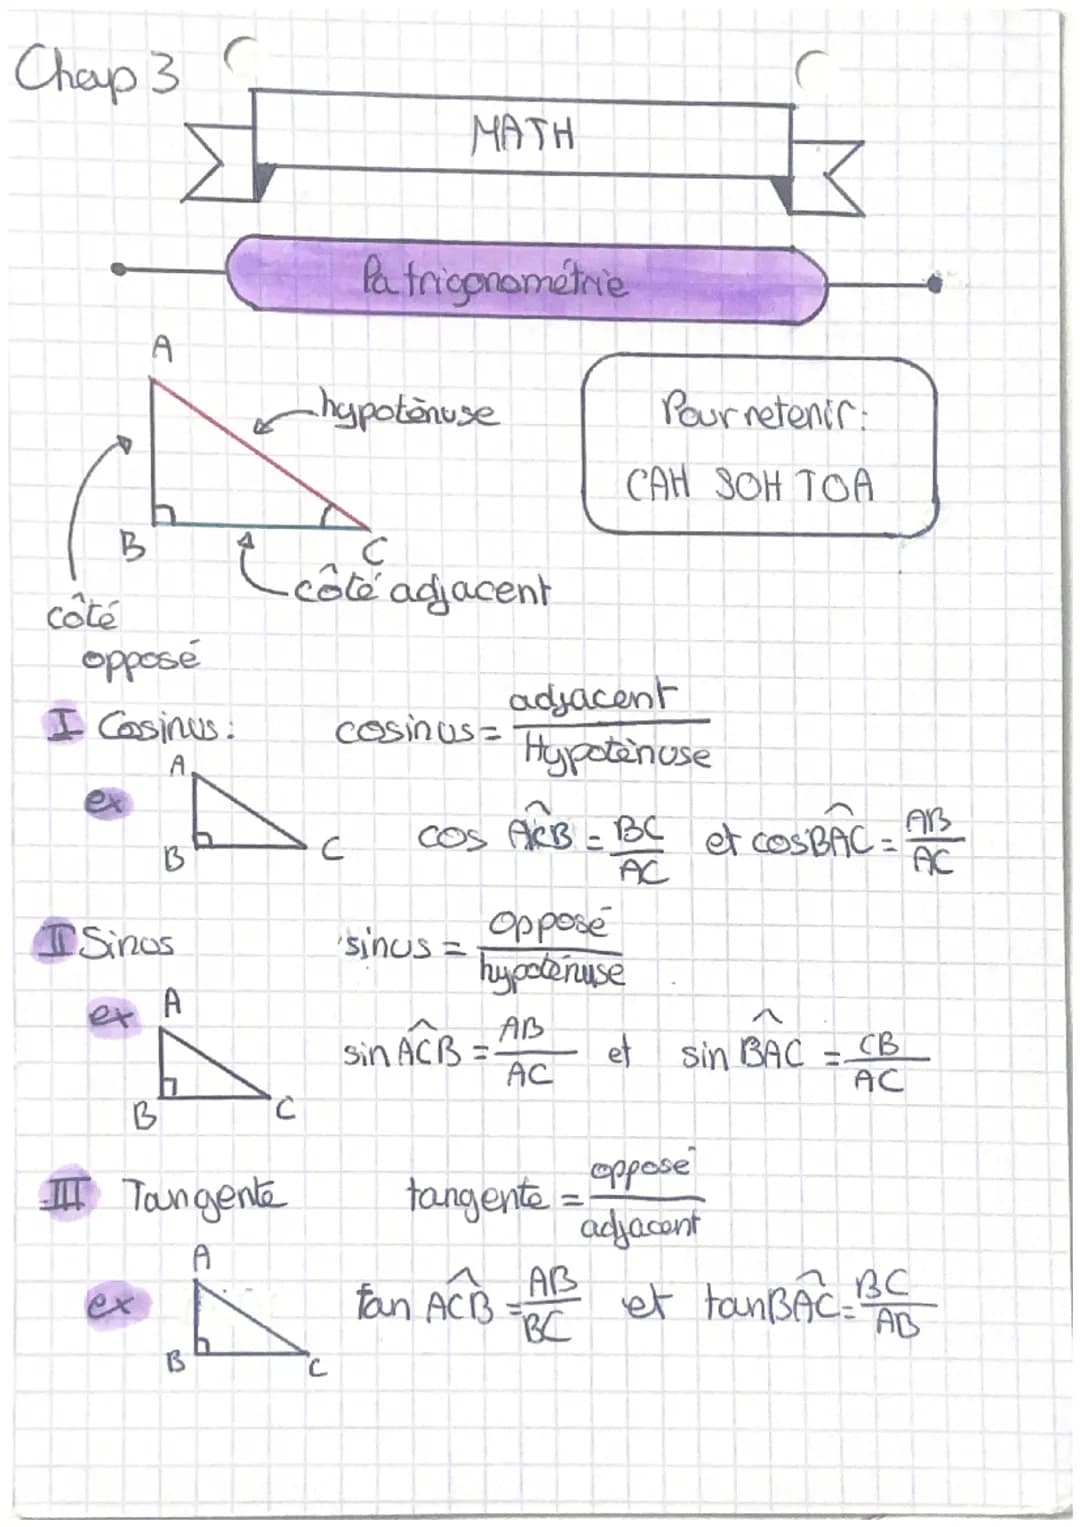 Chap 3
MATH
La trigonométrie
A
hypoténuse
Pour retenir:
CAH SOH TOA
B
C
côté adjacent
côté
opposé
I Cosinus: cosinus = adjacent / Hypoténuse
A
ex
B
C
cos ACB = BC / AC et cos BAC = AB / AC
II Sinus sinus = opposé / hypoténuse
ex
A
B
C
sin ACB = AB / AC et sin BAC = CB / AC
III Tangente tangente = opposé / adjacent
A
ex
B
C
tan ACB = AB / BC et tan BAC = BC / AB